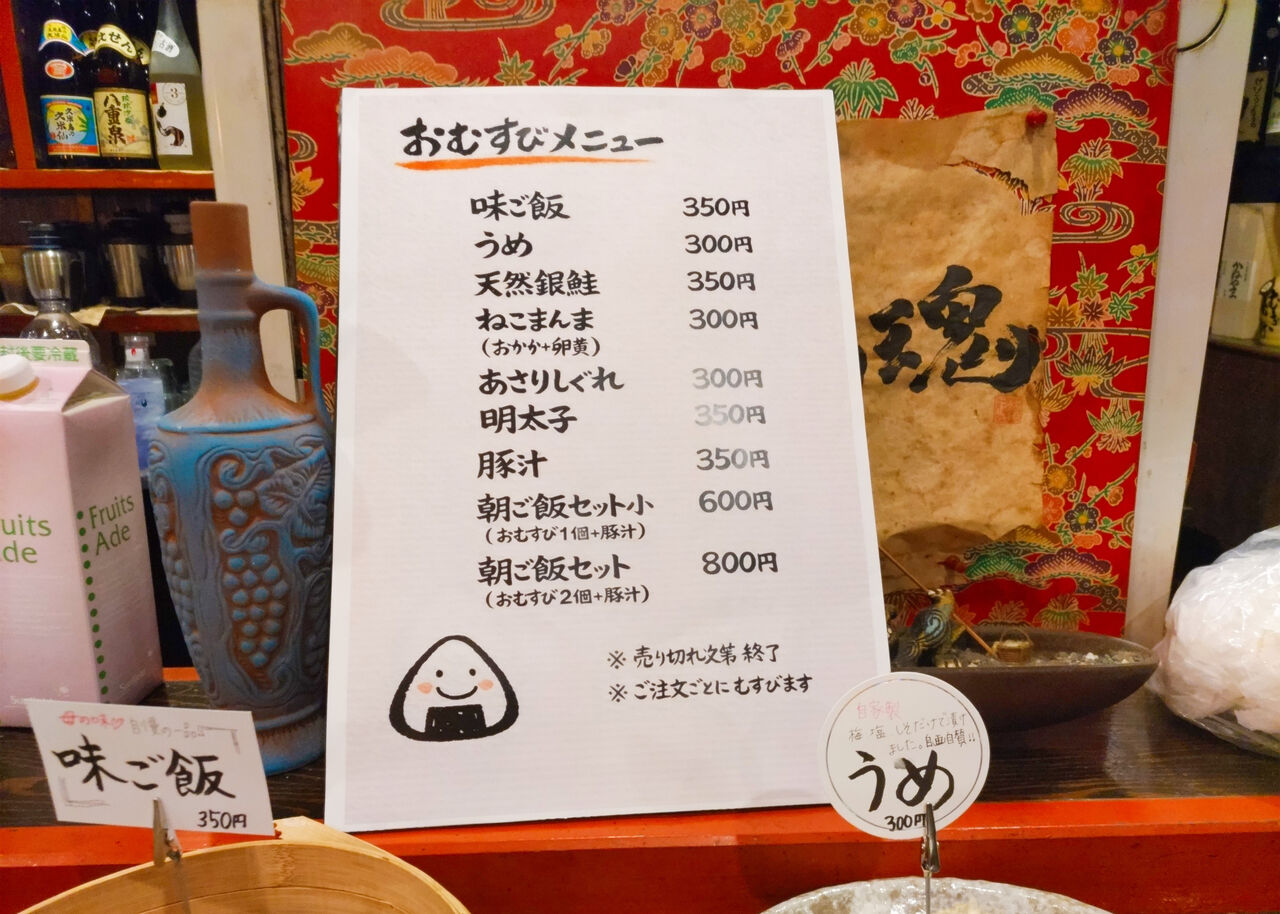 おむすびメニュー
味ご飯 350円
うめ 300円
天然銀鮭 350円
ねこまんま 300円
(おかか+卵黄)
あさりしぐれ 300円
明太子 350円
豚汁 350円
朝ご飯セット小 600円
(おむすび1個+豚汁)
朝ご飯セット 800円
(おむすび2個+豚汁)
※ 売り切れ次第 終了
※ ご注文ごとに むすびます
母の味♡ 自慢の一品
味ご飯
350円
自家製
梅 塩 しそだけで漬け
ました。自画自賛!!
うめ
300円
魂
八重泉
久米仙
要冷蔵
Fruits
Ade